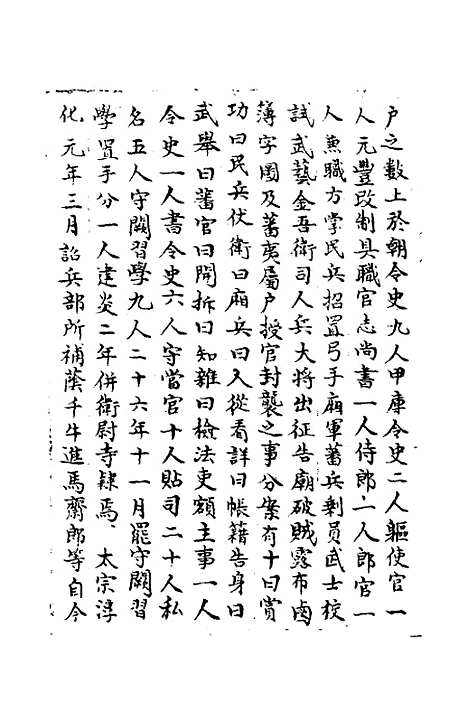 戶之數上於朝令史九人甲庫令史二人驅使官一
人元豐改制具職官志尚書一人侍郎一人郎官一
人兼職方掌民兵招置弓手廂軍蕃兵剩員武士校
試武藝金吾衛司人兵大將出征告廟破賊露布鹵
簿字圖及蕃夷屬户授官封襲之事分案有十曰賞
功曰民兵伏衛曰廂兵曰人從看詳曰帳籍告身曰
武舉曰蕃官曰開拆曰知雜曰檢法吏額主事一人
令史一人書令史六人守當官十人貼司二十人私
名五人守闕習學九人二十六年十一月罷守闕習
學置手分一人建炎二年併衛尉寺隸焉 太宗淳
化元年三月詔兵部所補蔭千牛進馬齋郎等自今